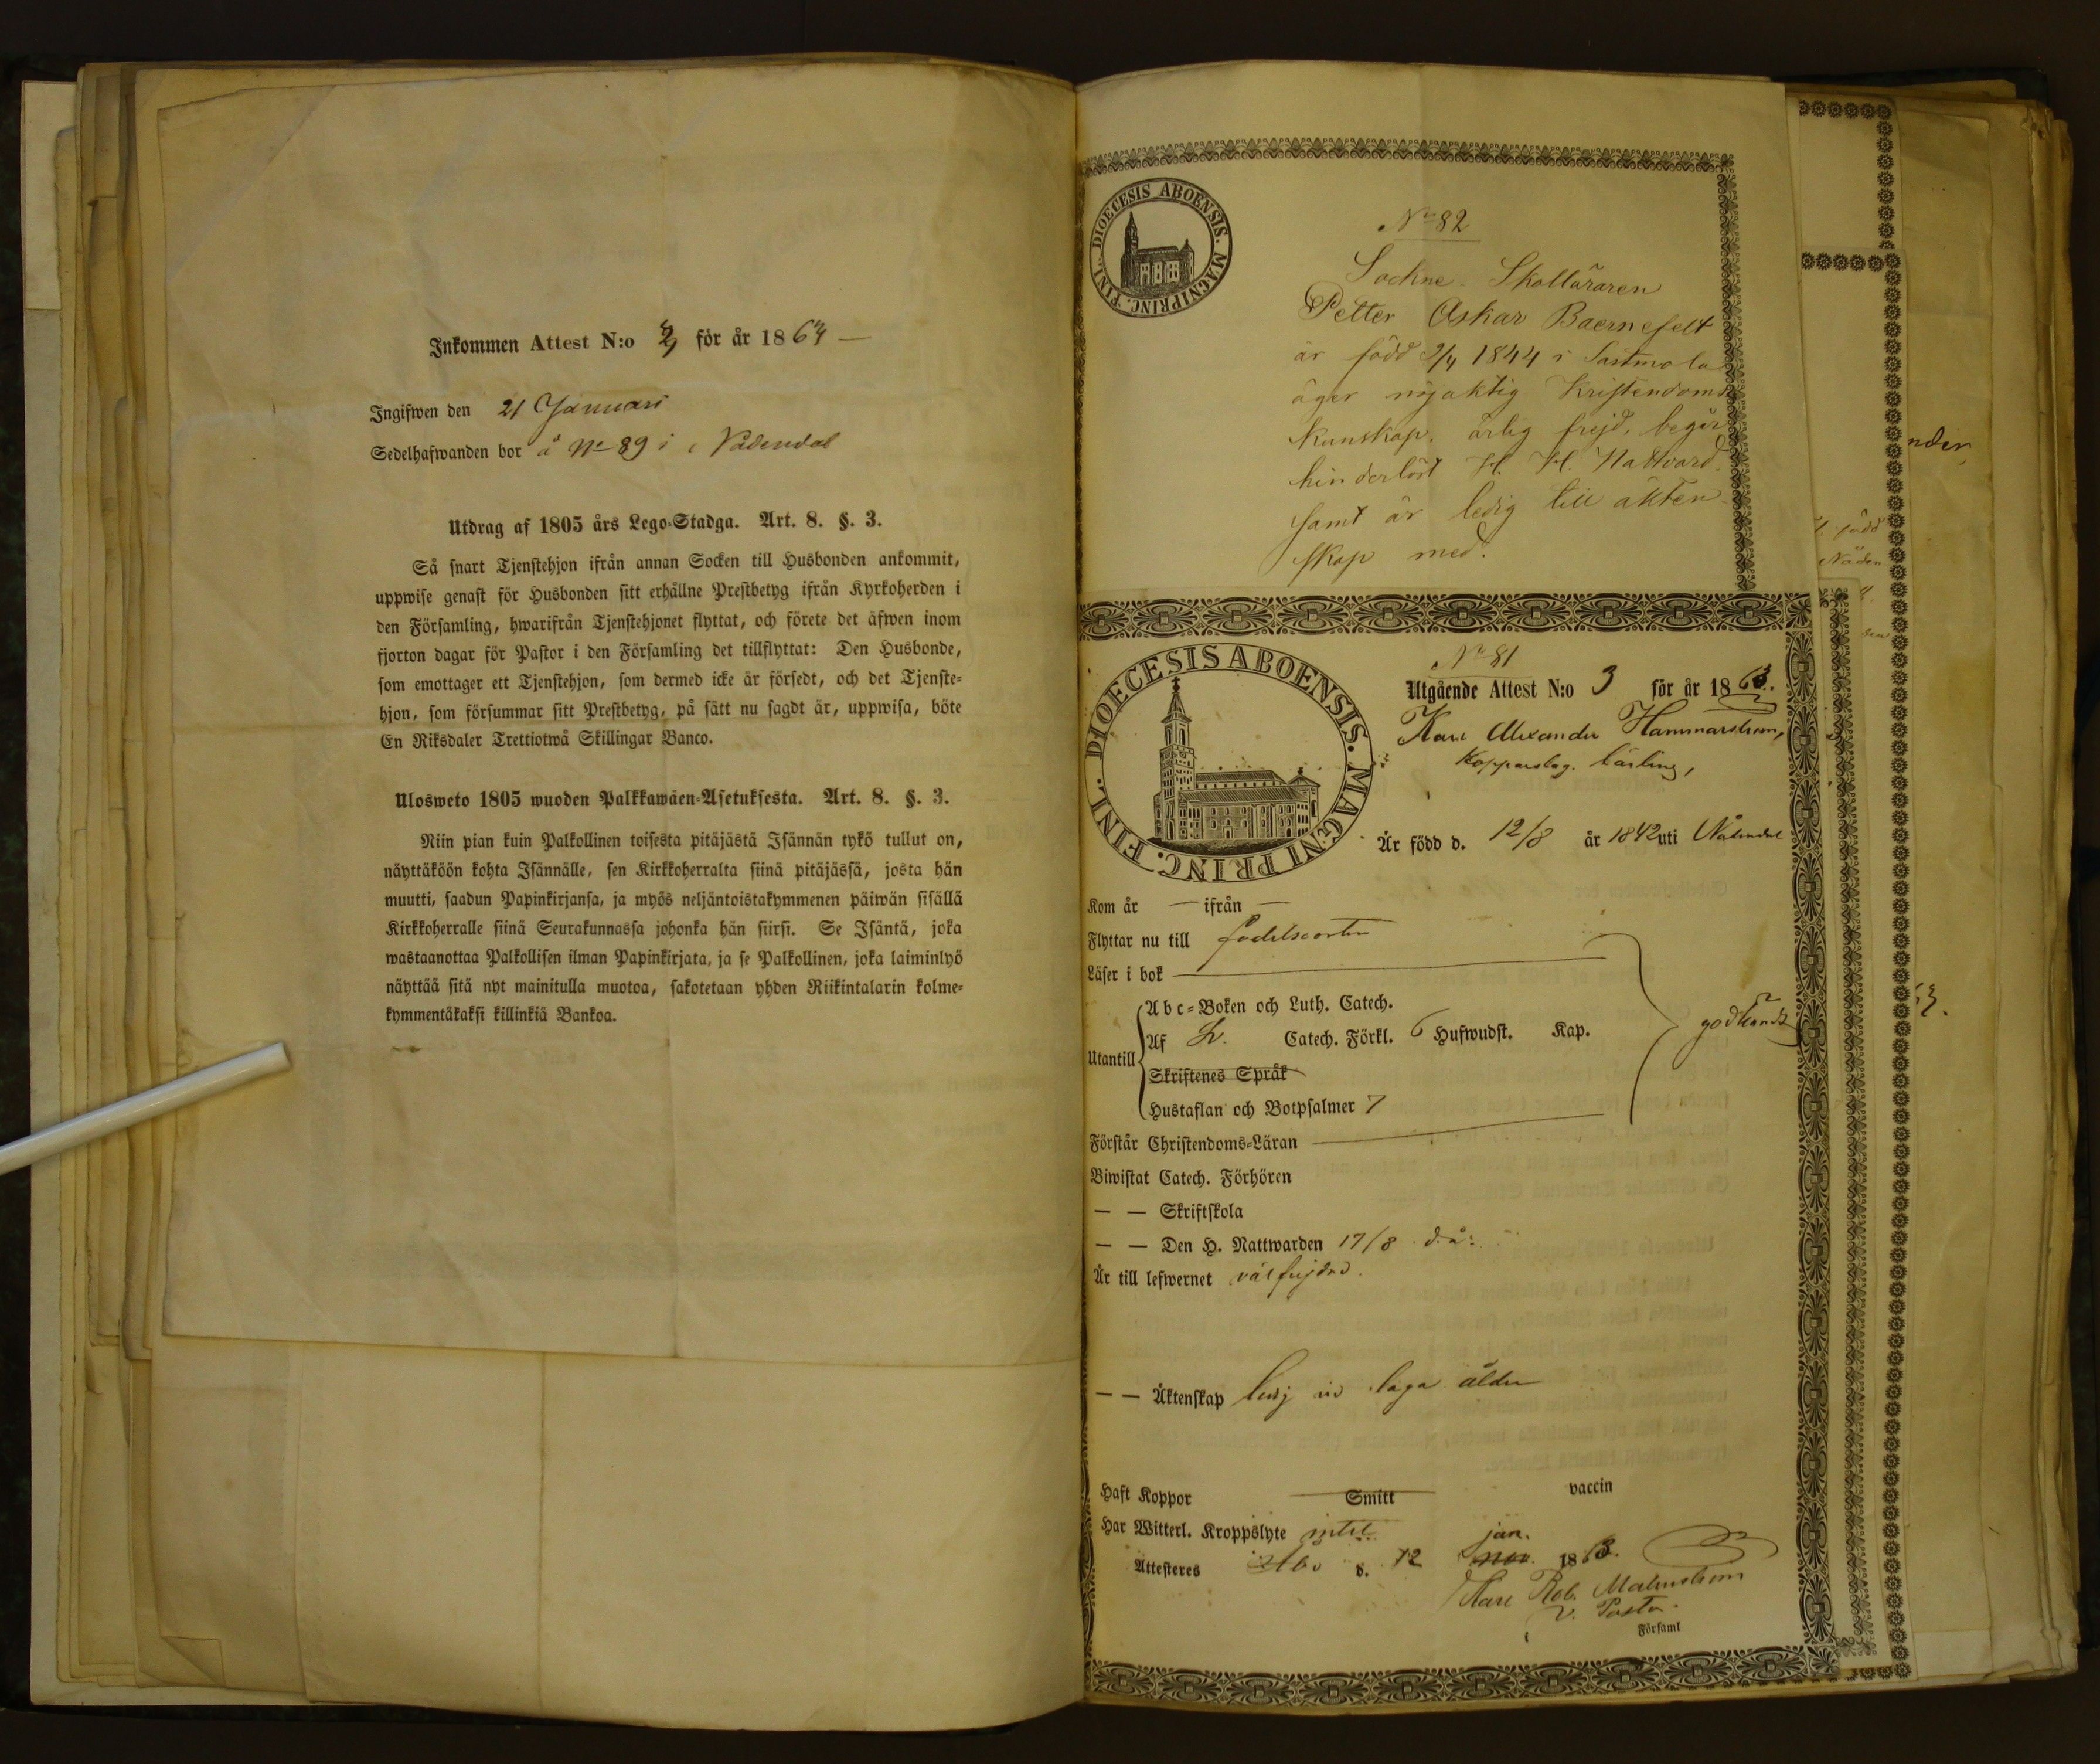 Inkommen Attest N:o 2 för år 1863
Ingifwen den 21 Januari
Sedelhafwanden bor å No 89 i Nådendal
Utdrag af 1805 års Lego-Stadga. Art. 8. §. 3.
Så snart Tjenstehjon ifrån annan Socken till Husbonden ankommit,
uppwise genast för Husbonden sitt erhållne Prestbetyg ifrån Kyrkoherden i
den Församling, hwarifrån Tjenstehjonet flyttat, och förete det äfwen inom
fjorton dagar för Pastor i den Församling det tillflyttat: Den Husbonde,
som emottager ett Tjenstehjon, som dermed icke är försedt, och det Tjenste-
hjon, som försummar sitt Prestbetyg, på sätt nu sagdt är, uppwisa, böte
En Riksdaler Trettiotwå Skillingar Banco.
Ulosweto 1805 wuoden Palkkawäen-Asetuksesta. Art. 8. §. 3.
Niin pian kuin Palkollinen toisesta pitäjästä Isännän tykö tullut on,
näyttäköön kohta Isännälle, sen Kirkkoherralta siinä pitäjässä, josta hän
muutti, saadun Papinkirjansa, ja myös neljäntoistakymmenen päiwän sisällä
Kirkkoherralle siinä Seurakunnassa johonka hän siirsi. Se Isäntä, joka
wastaanottaa Palkollisen ilman Papinkirjata, ja se Palkollinen, joka laiminlyö
näyttää sitä nyt mainitulla muotoa, sakotetaan yhden Riikintalarin kolme-
kymmentäkaksi killinkiä Bankoa.
DIOECESIS ABOENSIS. MAGNI PRINC. FINL.
No 82
Sockne-Skolläraren
Petter Oskar Baernefelt
är född 9/4 1844 i Sastmola
äger nöjaktig Kristendoms
kunskap, ärlig frejd, begår
hinderlöst H. H. Nattvard
samt är ledig till äkten-
skap med.
DIOECESIS ABOENSIS. MAGNI PRINC. FINL.
No 81
Utgående Attest N:o 3 för år 1863.
Karl Alexander Hammarström,
Kopparslag. lärling,
Är född d. 12/8 år 1842 uti Nådendal
Kom år — ifrån —
Flyttar nu till födelseorten
Läser i bok
Abc-Boken och Luth. Catech.
Utantill Af Sv. Catech. Förkl. 6 Hufwudst. Kap. godkändt
Skriftenes Språk
Hustaflan och Botpsalmer 7
Förstår Christendoms-Läran
Biwistat Catech. Förhören
— — Skriftskola
— — Den H. Nattwarden 17/8 d. å:
Är till lefwernet välfrejdad.
— — Äktenskap ledig vid laga ålder
Haft Koppor Smitt vaccin
Har Witterl. Kroppslyte intet
jan.
Attesteres Åbo d. 12 1863.
Karl Rob. Malmström
v. Pastor.
Församl
nder,
född
Nåden